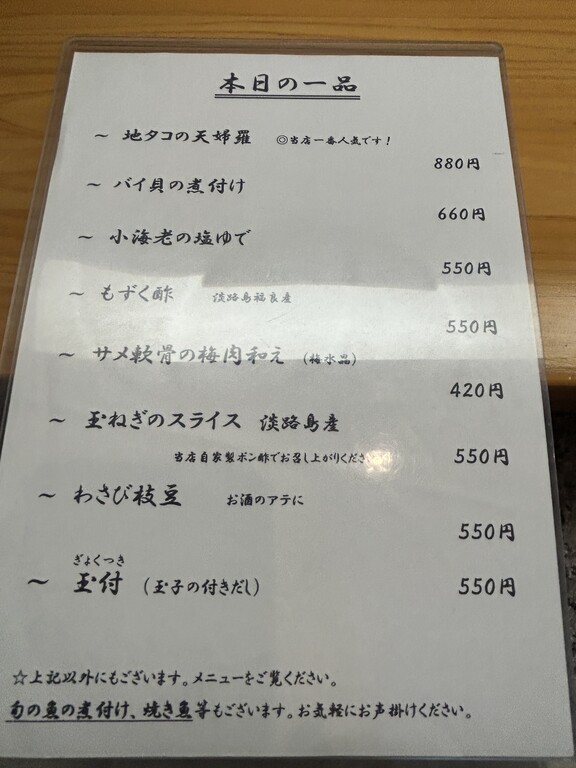 本日の一品
～ 地タコの天婦羅 ◎当店一番人気です！
880円
～ バイ貝の煮付け
660円
～ 小海老の塩ゆで
550円
～ もずく酢 淡路島福良産
550円
～ サメ軟骨の梅肉和え (梅水晶)
420円
～ 玉ねぎのスライス 淡路島産
当店自家製ポン酢でお召し上がりくださ
550円
～ わさび枝豆 お酒のアテに
550円
ぎょくつき
～ 玉付 (玉子の付きだし)
550円
☆上記以外にもございます。メニューをご覧ください。
旬の魚の煮付け、焼き魚等もございます。お気軽にお声掛けください。